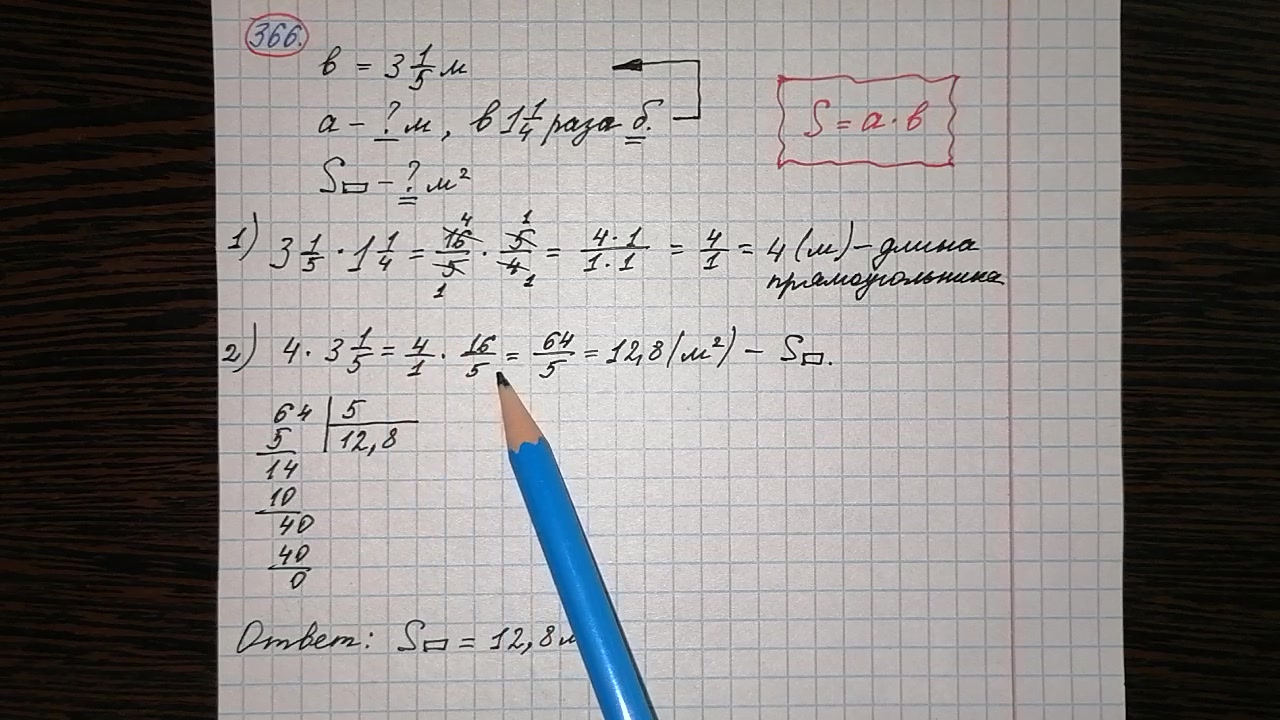 366.
в = 3 1/5 м
a – ? м, в 1 1/4 раза б.
S = a · в
S▭ – ? м²
1) 3 1/5 · 1 1/4 = 16/5 · 5/4 = 4·1/1·1 = 4/1 = 4 (м) – длина
прямоугольника
2) 4 · 3 1/5 = 4/1 · 16/5 = 64/5 = 12,8 (м²) – S▭.
64 | 5
5 | 12,8
14
10
40
40
0
Ответ: S▭ = 12,8 м